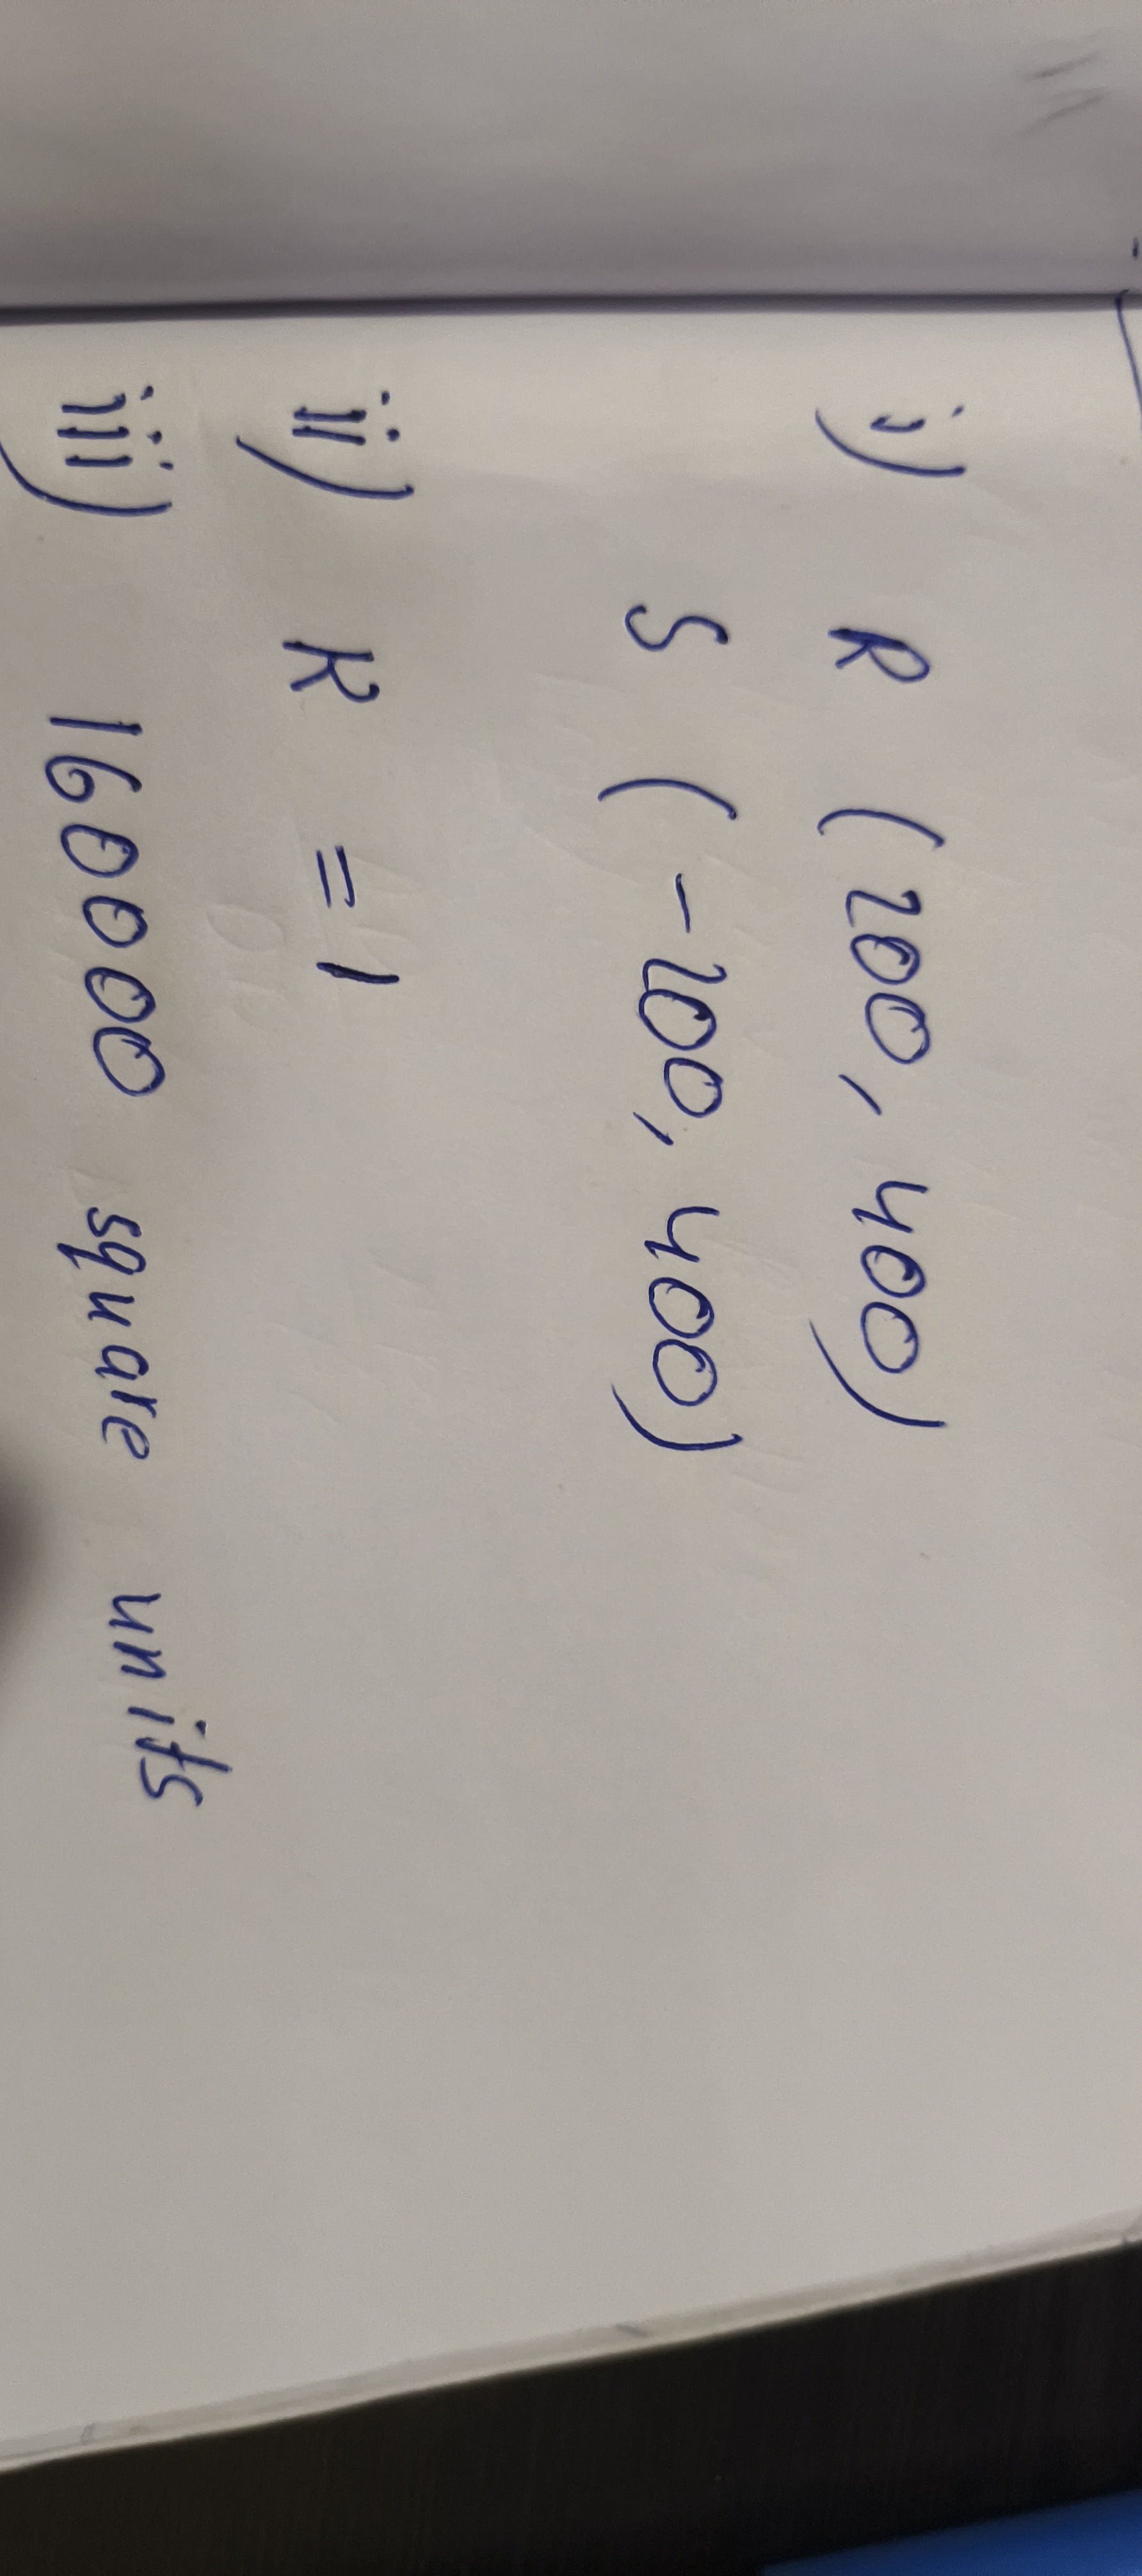 i) R (200, 400)
S (-200, 400)
ii) K = 1
iii) 160000 square units